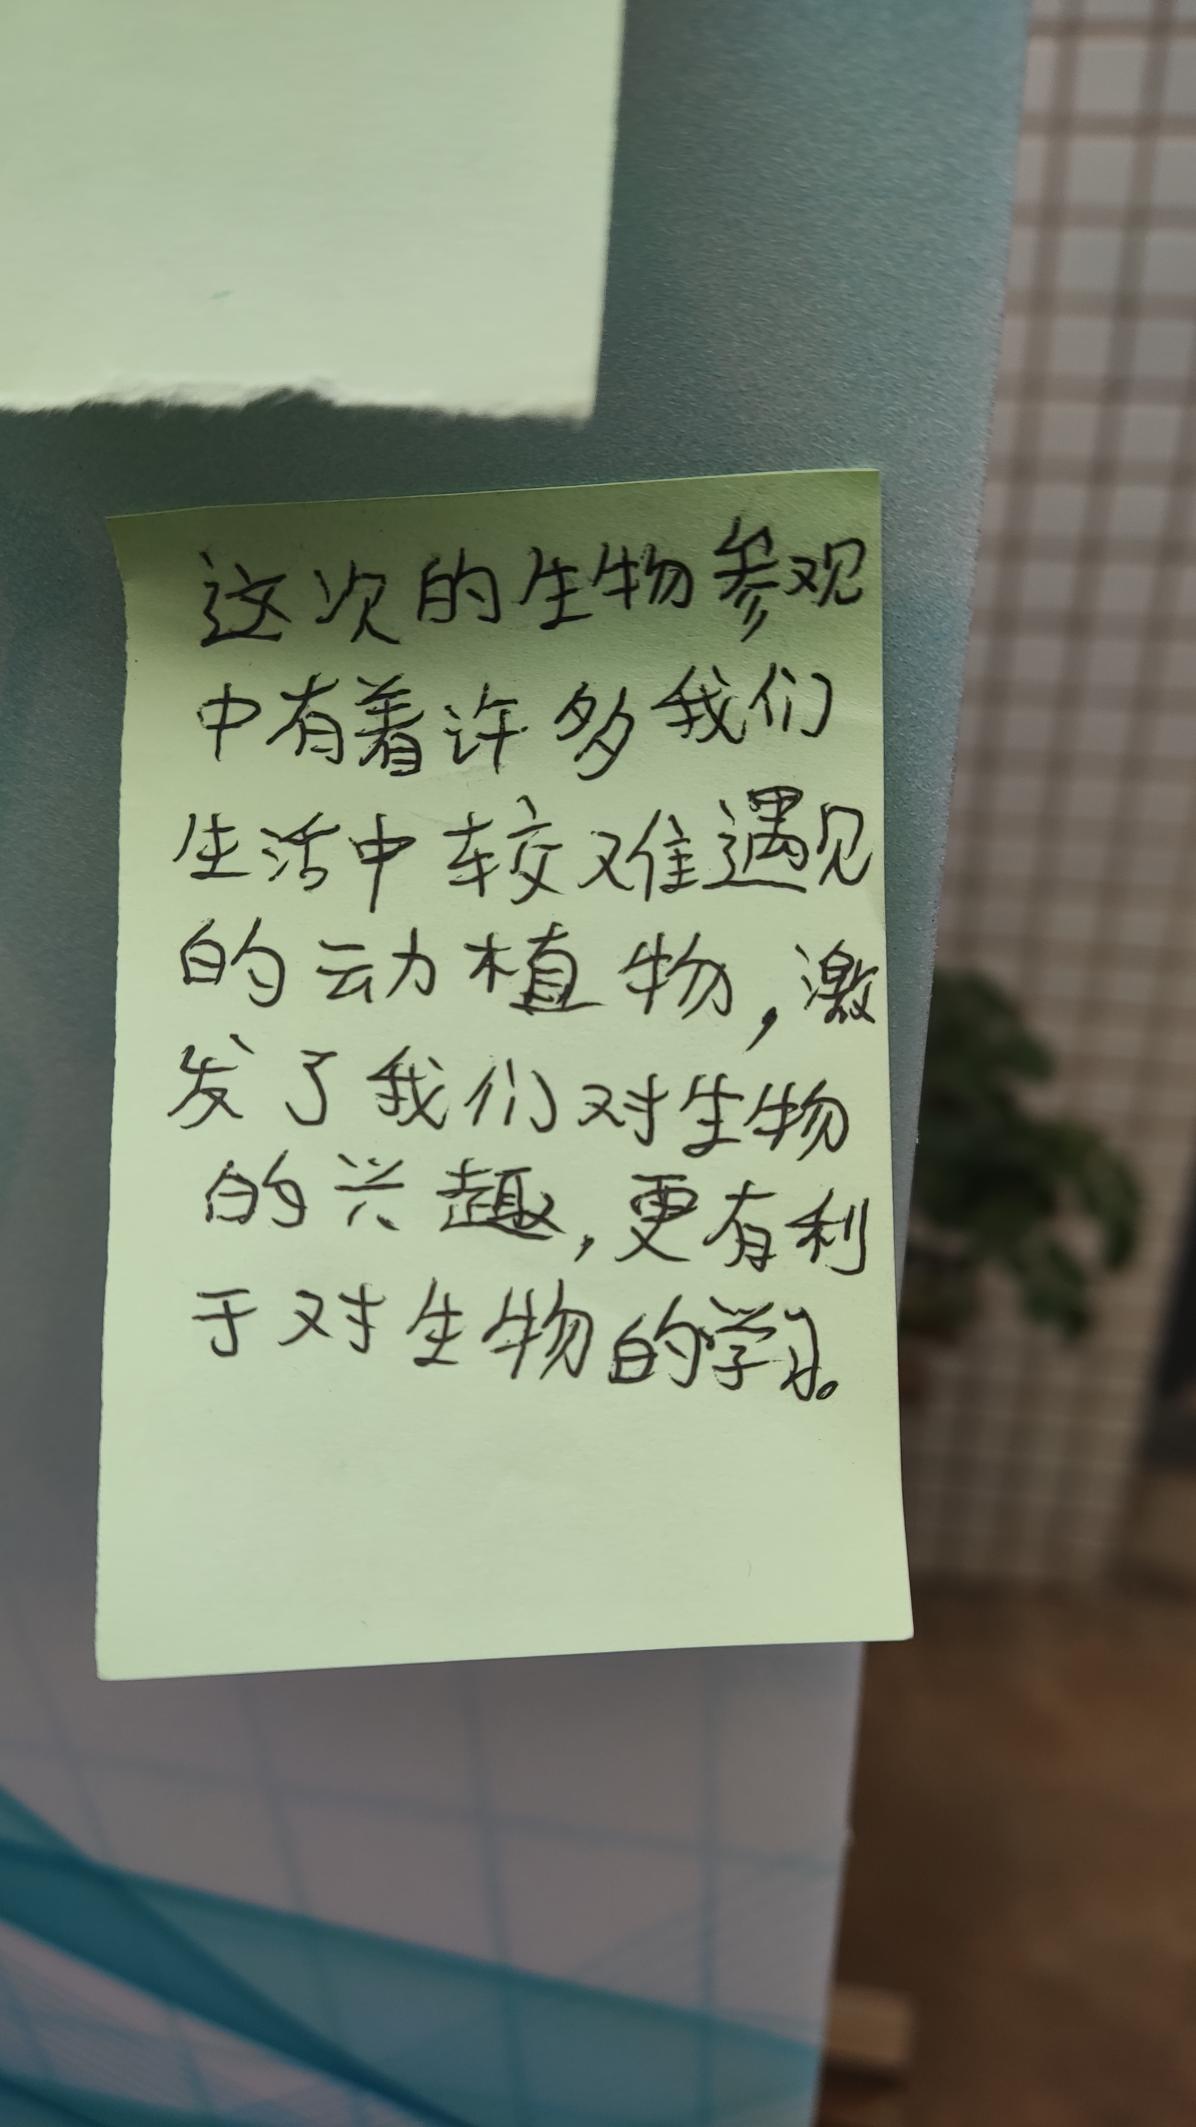 这次的生物参观
中有着许多我们
生活中较难遇见
的动植物，激
发了我们对生物
的兴趣，更有利
于对生物的学习。